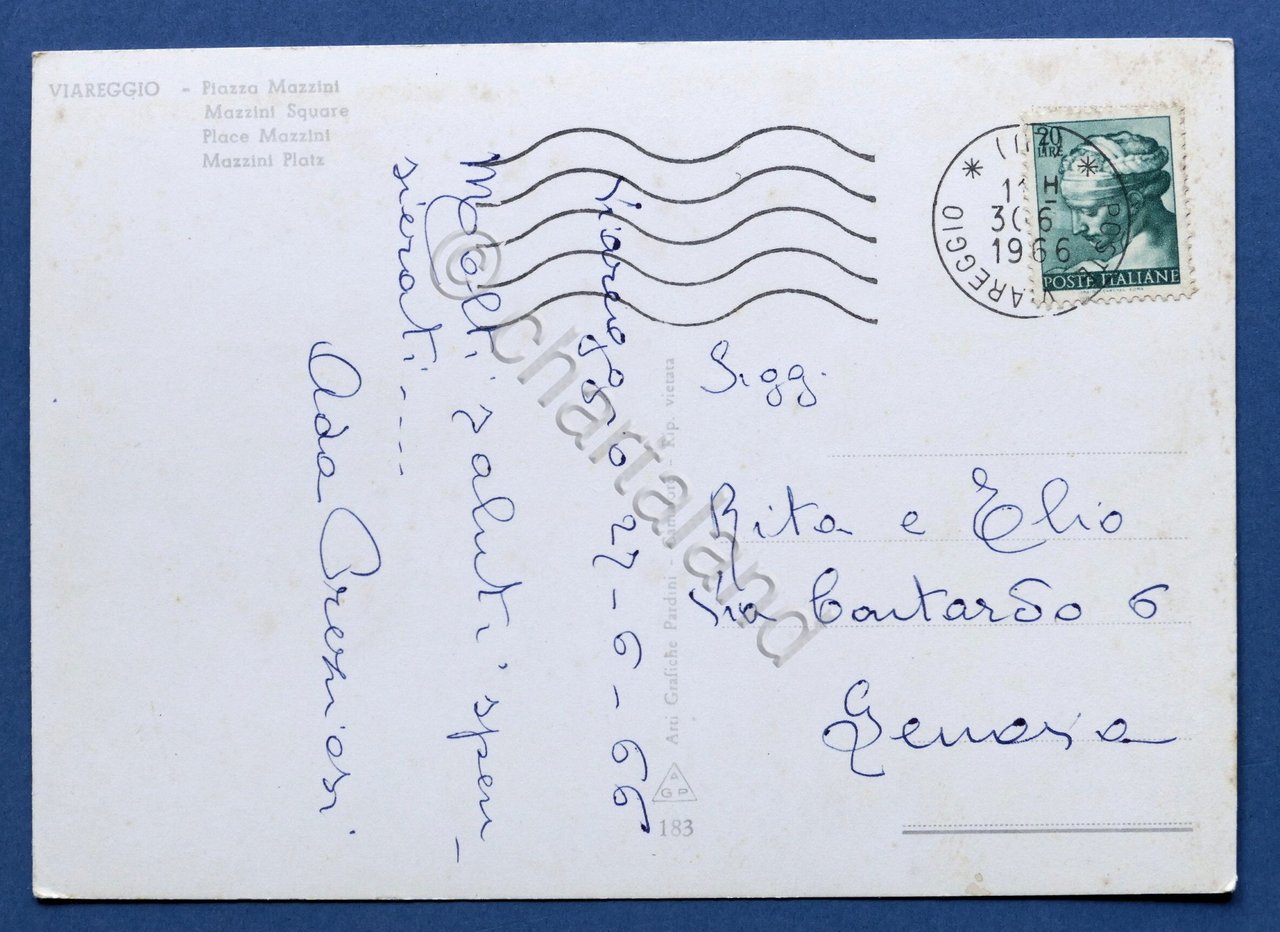 VIAREGGIO - Piazza Mazzini
Mazzini Square
Place Mazzini
Mazzini Platz
20
LIRE
POSTE ITALIANE
VIAREGGIO
11 H
30 6
1966
Viareggio 27-6-66
Molti saluti spen-
sierati----
Ada Preziosi
Sigg.
Rita e Elio
Via Contardo 6
Genova
Arti Grafiche Pardini - - Rip. vietata
A
G P
183
© chartaland